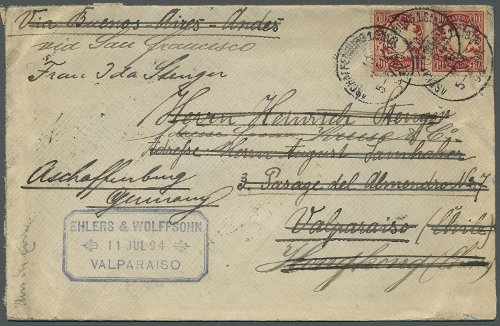 Via Buenos Aires - Andes
via San Francisco
Frau Ida Stenger
Herrn Heinrich Stenger
& Co.
Adresse Herrn August
3. Pasage del Almendro No 7
Aschaffenburg
Germany
Valparaiso (Chile)
Hongkong
EHLERS & WOLFFSOHN
11 JUL 94
VALPARAISO
ASCHAFFENBURG